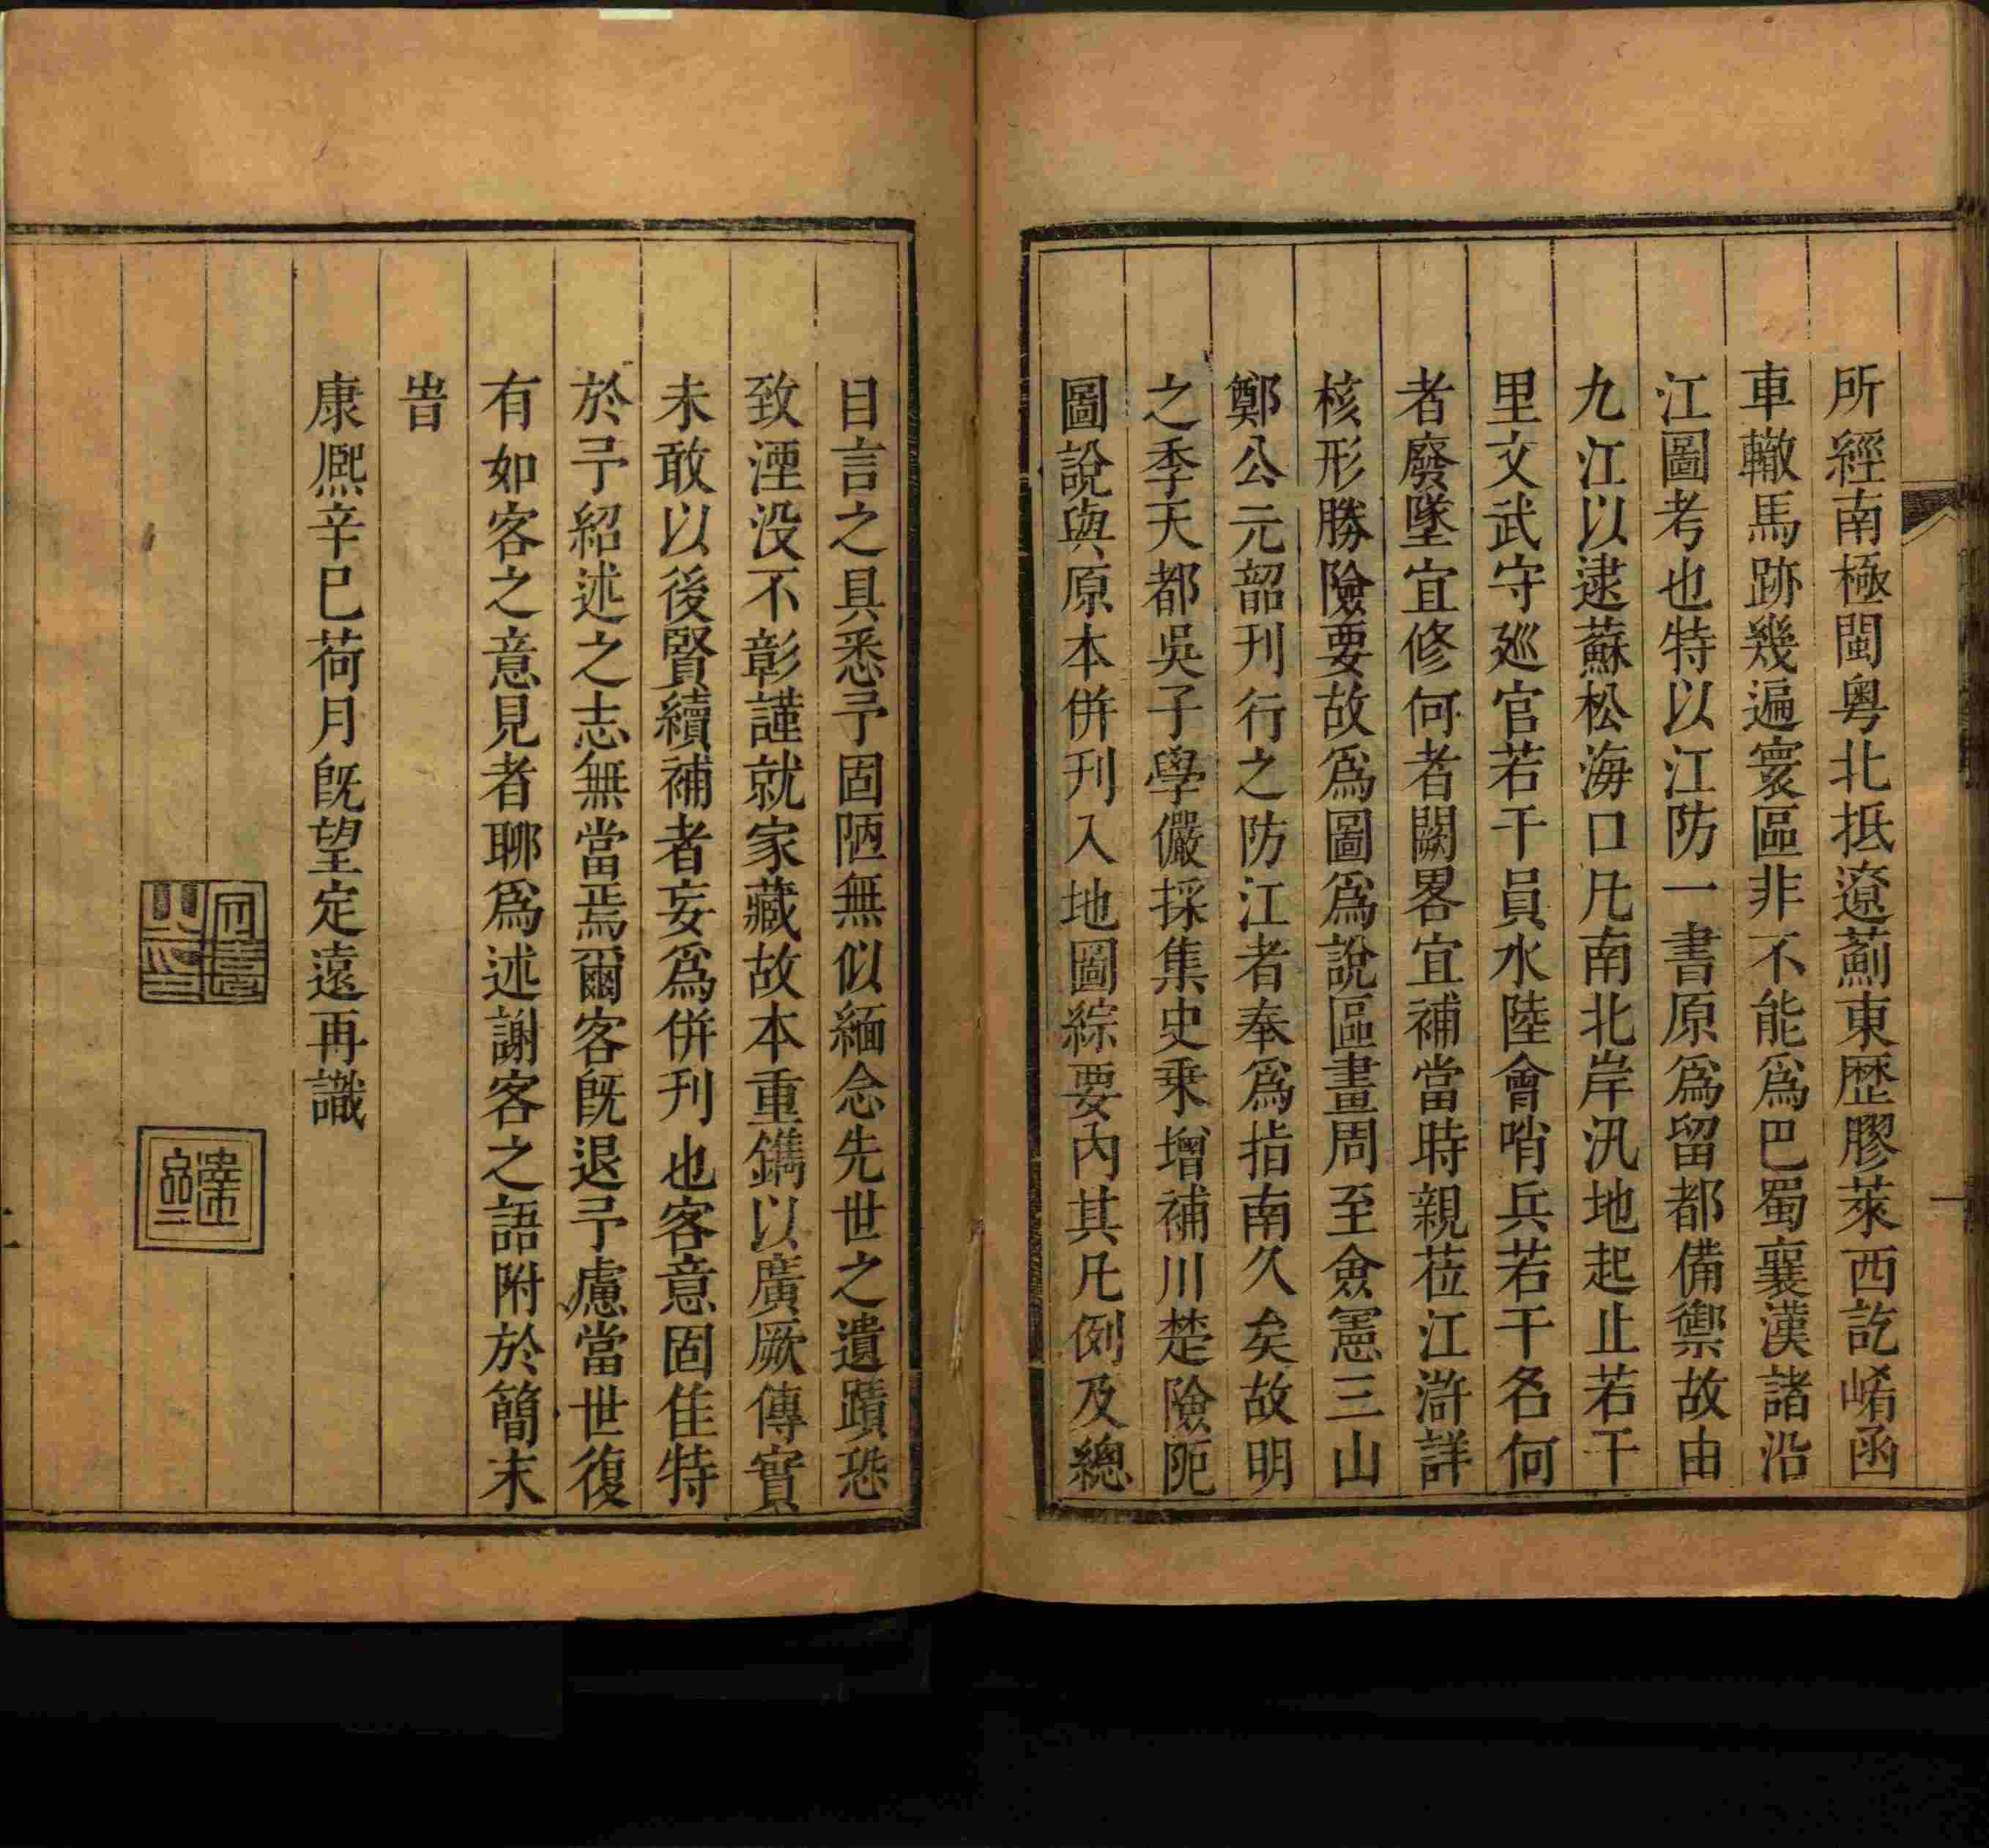 所經南極閩粤北抵遼薊東歴膠萊西訖崤函
車轍馬跡幾遍寰區非不能爲巴蜀襄漢諸沿
江圖考也特以江防一書原爲留都備禦故由
九江以逮蘇松海口凡南北岸汛地起止若干
里文武守廵官若干員水陸會哨兵若干名何
者廢墜宜修何者闕畧宜補當時親莅江滸詳
核形勝險要故爲圖爲說區畫周至僉憲三山
鄭公元韶刊行之防江者奉爲指南久矣故明
之季天都吳子學儼採集史乗增補川楚險阨
圖說與原本併刊入地圖綜要內其凡例及總
目言之具悉予固陋無似緬念先世之遺蹟恐
致湮没不彰謹就家藏故本重鐫以廣厥傳實
未敢以後賢續補者妄爲併刊也客意固佳特
於予紹述之志無當焉爾客旣退予慮當世復
有如客之意見者聊爲述謝客之語附於簡末
旹
康熙辛巳荷月旣望定遠再識